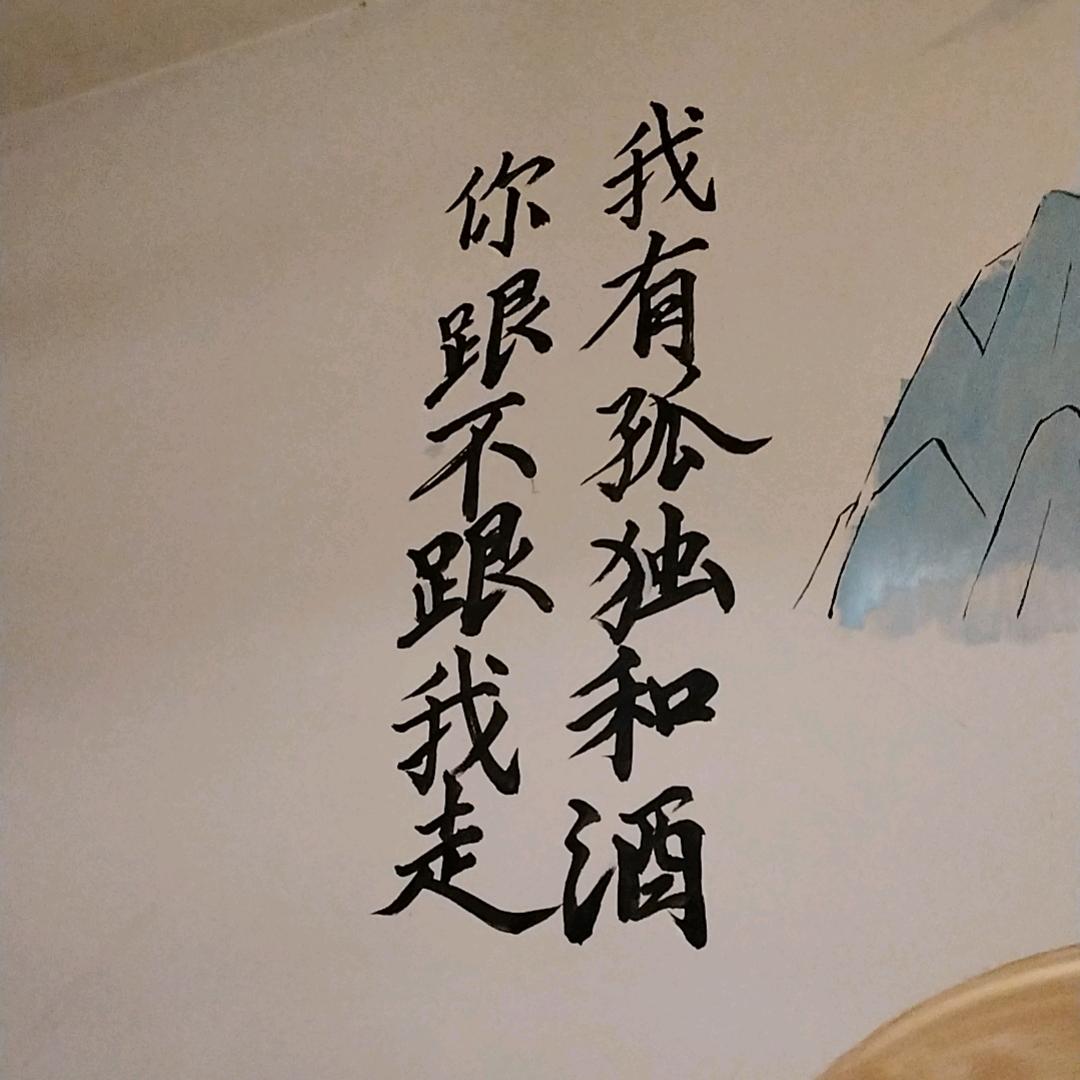 我有孤独和酒
你跟不跟我走